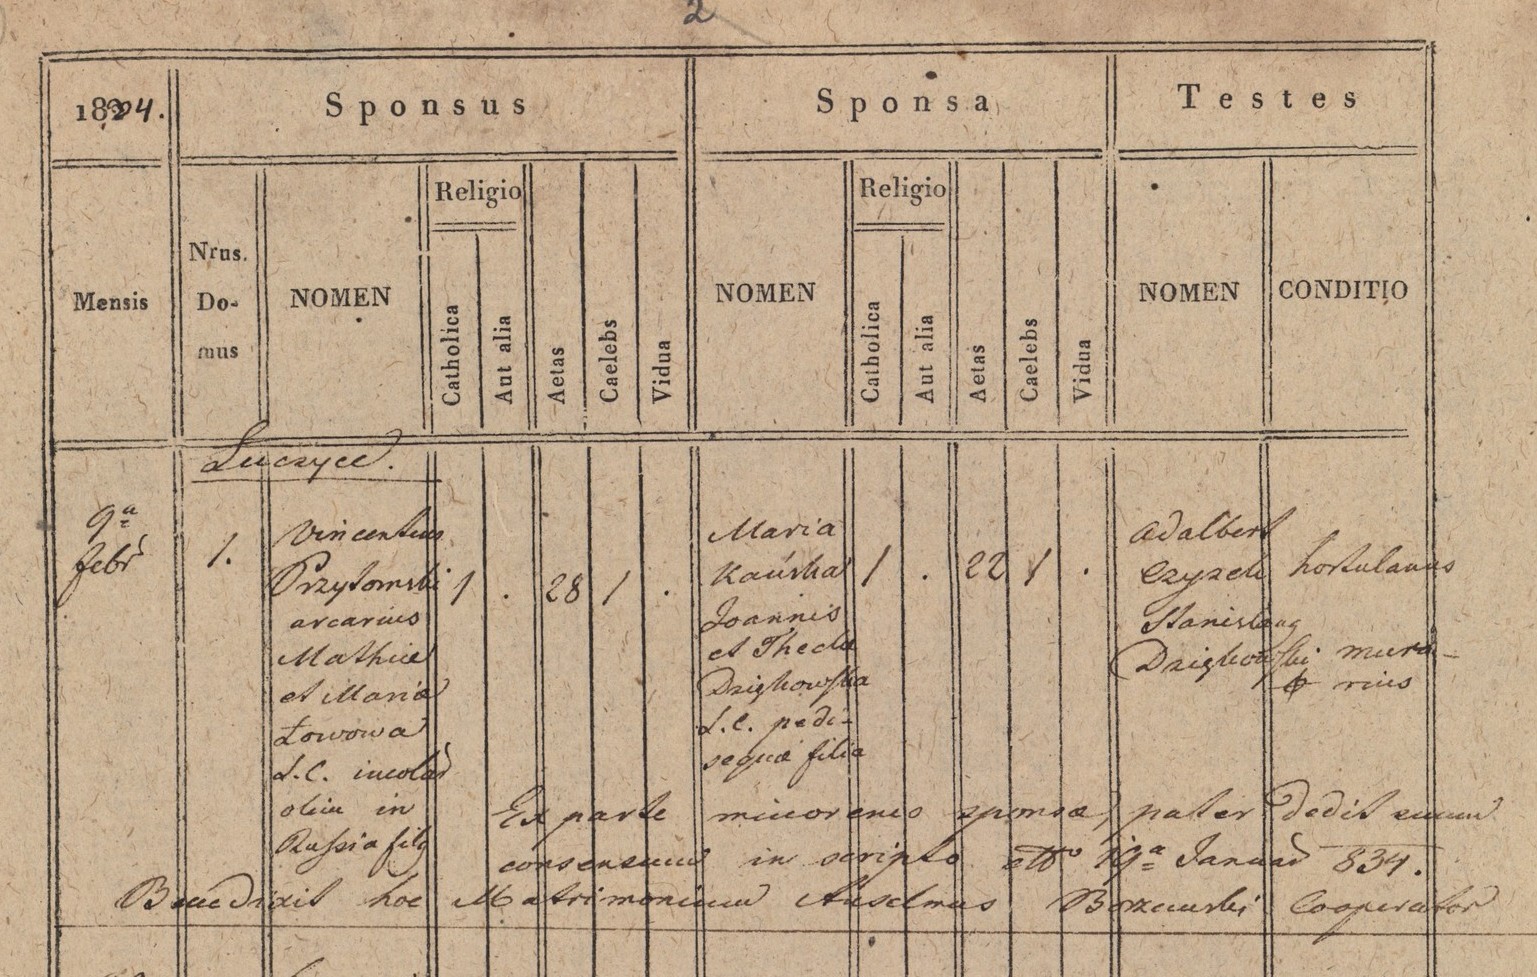 2
1834.
Sponsus
Sponsa
Testes
Mensis
Nrus.
Do-
mus
NOMEN
Religio
Catholica
Aut alia
Aetas
Caelebs
Vidua
NOMEN
Religio
Catholica
Aut alia
Aetas
Caelebs
Vidua
NOMEN
CONDITIO
Łuczyce.
9a
febr
1.
Vincentius
Przytomski
arcarius
Mathiæ
et Mariæ
Łowowa
L.C. incolar
olim in
Russia filg
1 . 28 1 .
Maria
Kańska
Joannis
et Theclæ
Dzighowska
L.C. pedi-
sequæ filia
1 . 22 1 .
Adalbert
Czyzek hortulanus
Stanislaus
Dzighowski mura-
rius
Ex parte minorenis sponsæ, pater dedit suum
consensum in scripto dtto 19a Januar 834.
Benedixit hoc Matrimonium Anselmus Borzewski Cooperator